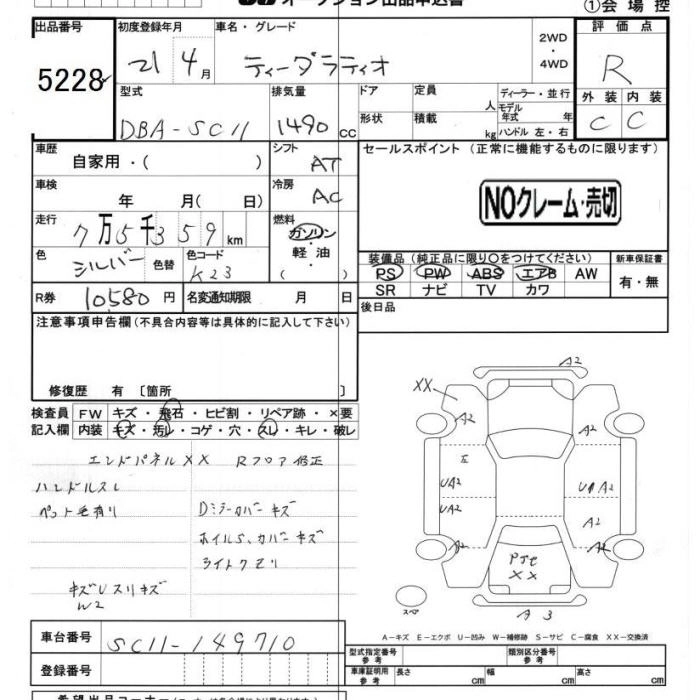 オークション出品申込書 ①会場控
出品番号 初度登録年月 車名・グレード 2WD・4WD 評価点
5228 21 4月 ティーダラティオ R
型式 排気量 ドア 定員 人 ディーラー・並行 外装 内装
DBA-SC11 1490cc 形状 積載 kg モデル年式 年 ハンドル 左・右 C C
車歴 自家用・( ) シフト AT セールスポイント (正常に機能するものに限ります)
車検 年 月( 日) 冷房 AC NOクレーム・売切
走行 7万5千359km 燃料 ガソリン・軽油・( )
色 シルバー 色替 色コード K23
装備品 (純正品に限り○をつけてください) 新車保証書
PS PW ABS エアB AW 有・無
SR ナビ TV カワ
R券 10580円 名変通知期限 月 日 後日品
注意事項申告欄 (不具合内容等は具体的に記入して下さい)
修復歴 有 〔箇所 〕
検査員記入欄 FW キズ・飛石・ヒビ割・リペア跡・×要
内装 キズ・汚レ・コゲ・穴・スレ・キレ・破レ
エンドパネルXX Rフロア修正
ハンドルスレ
ペット毛有り Dミラーカバーキズ
ホイルS、カバーキズ
ライトクモリ
キズUスリキズ
W2
A2
XX
A2 A2
UA2 UA2
UA2 A2
A2 A2
XX
A3
スペア
A-キズ E-エクボ U-凹み W-補修跡 S-サビ C-腐食 XX-交換済
車台番号 SC11-149710
登録番号
型式指定番号 参考 類別区分番号 参考
車庫証明用 参考 長さ cm 幅 cm 高さ cm
希望出品コーナー